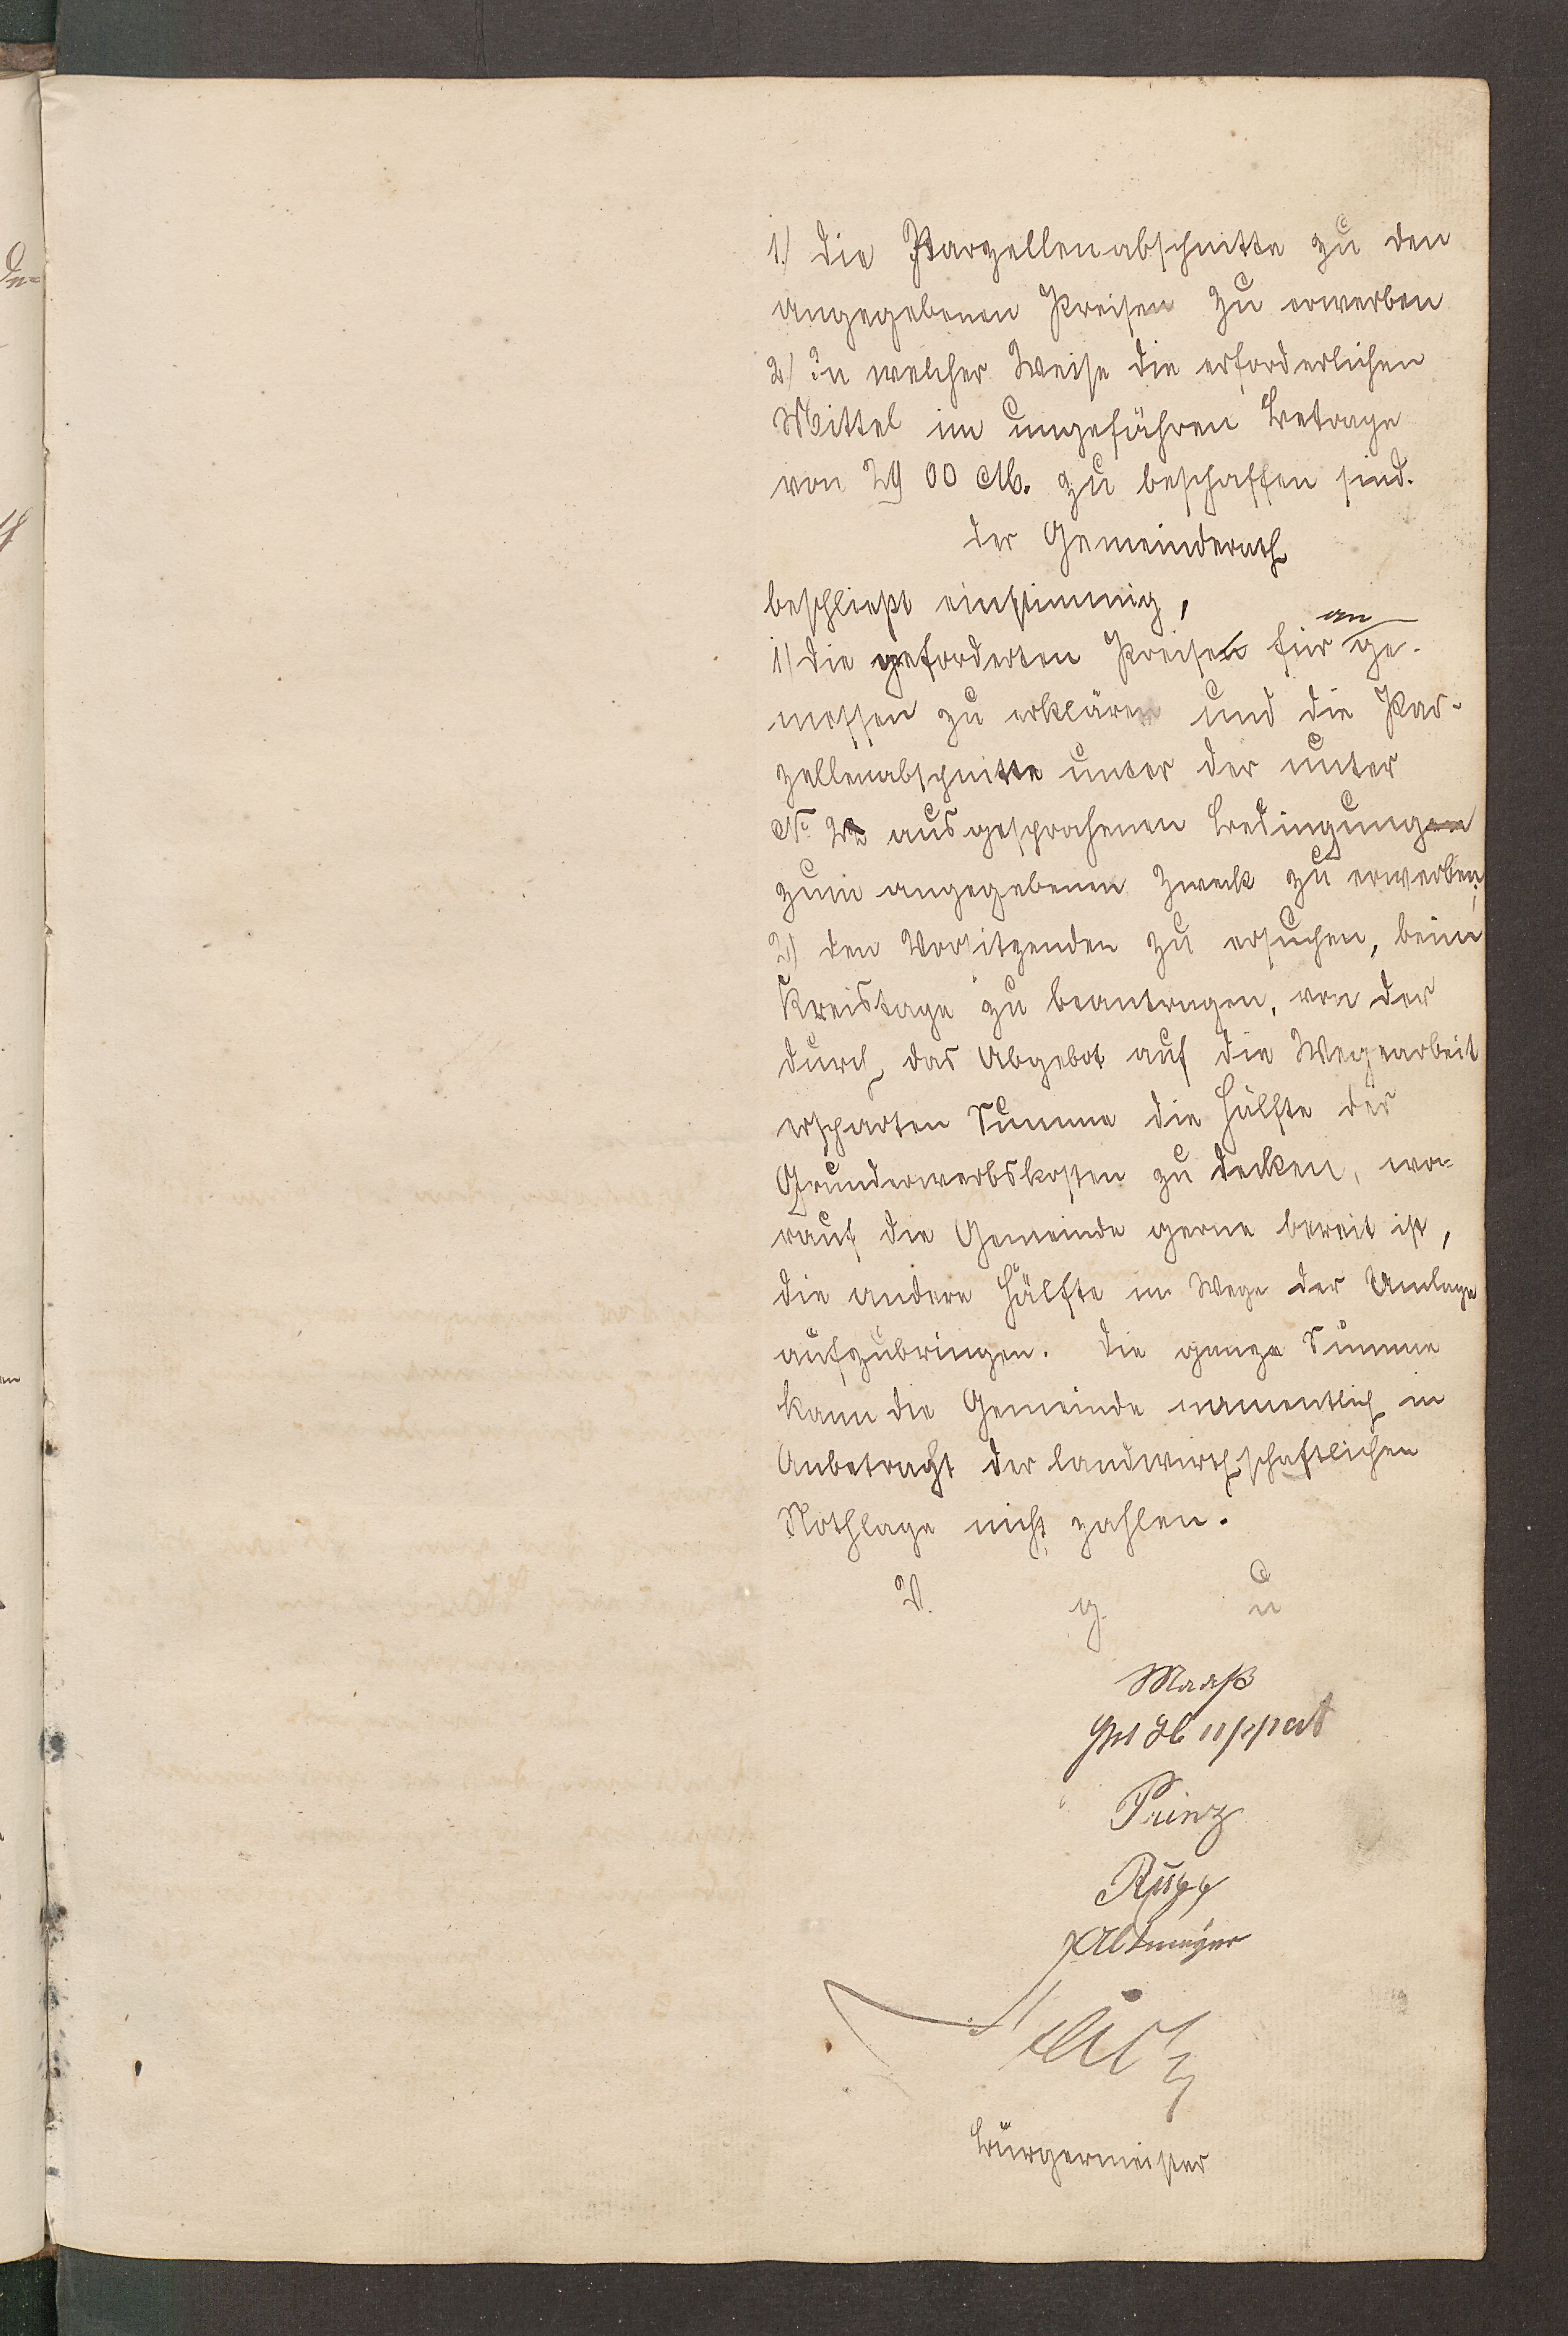 1.) die Parzellenabschnitte zu den
angegebenen Preisen zu erwerben
2.) In welcher Weise die erforderlichen
Mittel im ungefähren Betrage
von 2900 M. zu beschaffen sind.
Der Gemeinderath
beschließt einstimmig,
1) die geforderten Preise für an ge-
messen zu erklären und die Par-
zellenabschnitte unter der unter
No. 2 ausgesprochenen Bedingung
zum angegebenen Zweck zu erwerben;
2) den Vorsitzenden zu ersuchen, beim
Kreistage zu beantragen, von der
durch das Abgebot auf die Wegearbeit
ersparten Summe die Hälfte der
Grunderwerbskosten zu decken, wo-
rauf die Gemeinde gerne bereit ist,
die andere Hälfte im Wege der Umlage
aufzubringen. Die ganze Summe
kann die Gemeinde namentlich in
Anbetracht der landwirthschaftlichen
Nothlage nicht zahlen.
V. g. u
Maaß
Huppert
Prinz
Rupp
Altmeyer
Bürgermeister